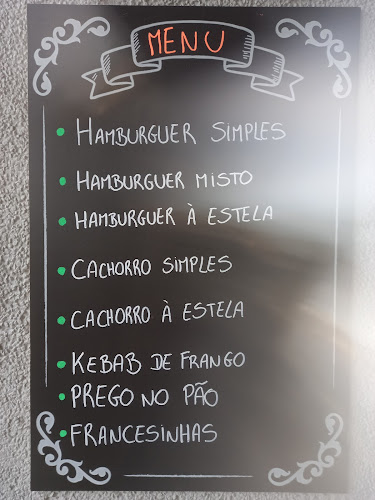 MENU
• HAMBURGUER SIMPLES
• HAMBURGUER MISTO
• HAMBURGUER À ESTELA
• CACHORRO SIMPLES
• CACHORRO À ESTELA
• KEBAB DE FRANGO
• PREGO NO PÃO
• FRANCESINHAS